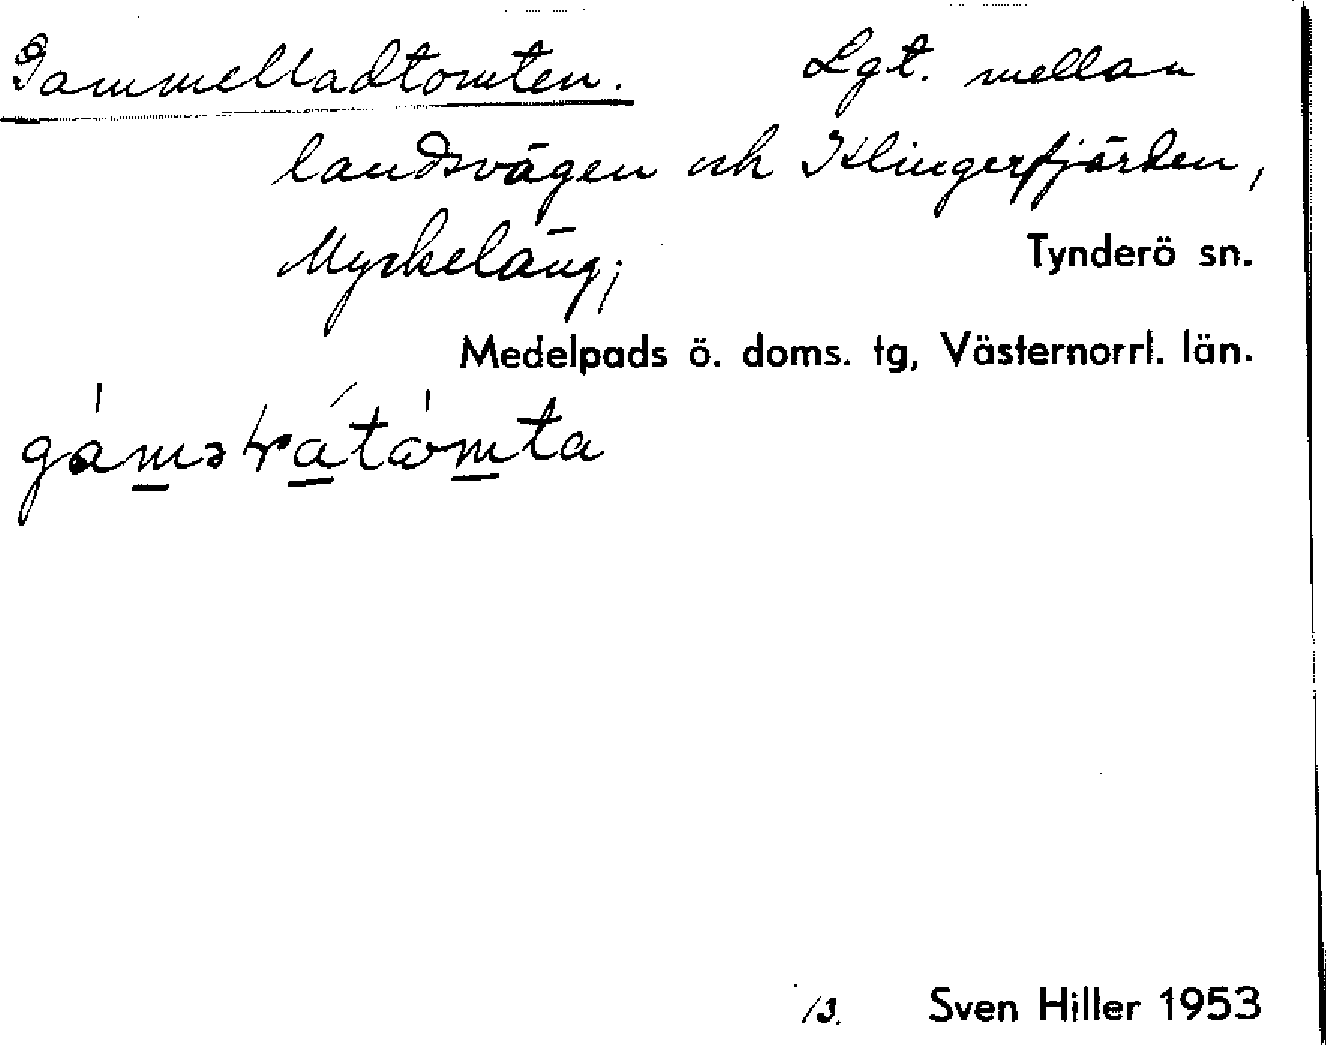 Gammelladtomten. Lgt. mellan
landsvägen och Klingerfjärden,
Myrkeläng, Tynderö sn.
Medelpads ö. doms. tg, Västernorrl. län.
/3. Sven Hiller 1953